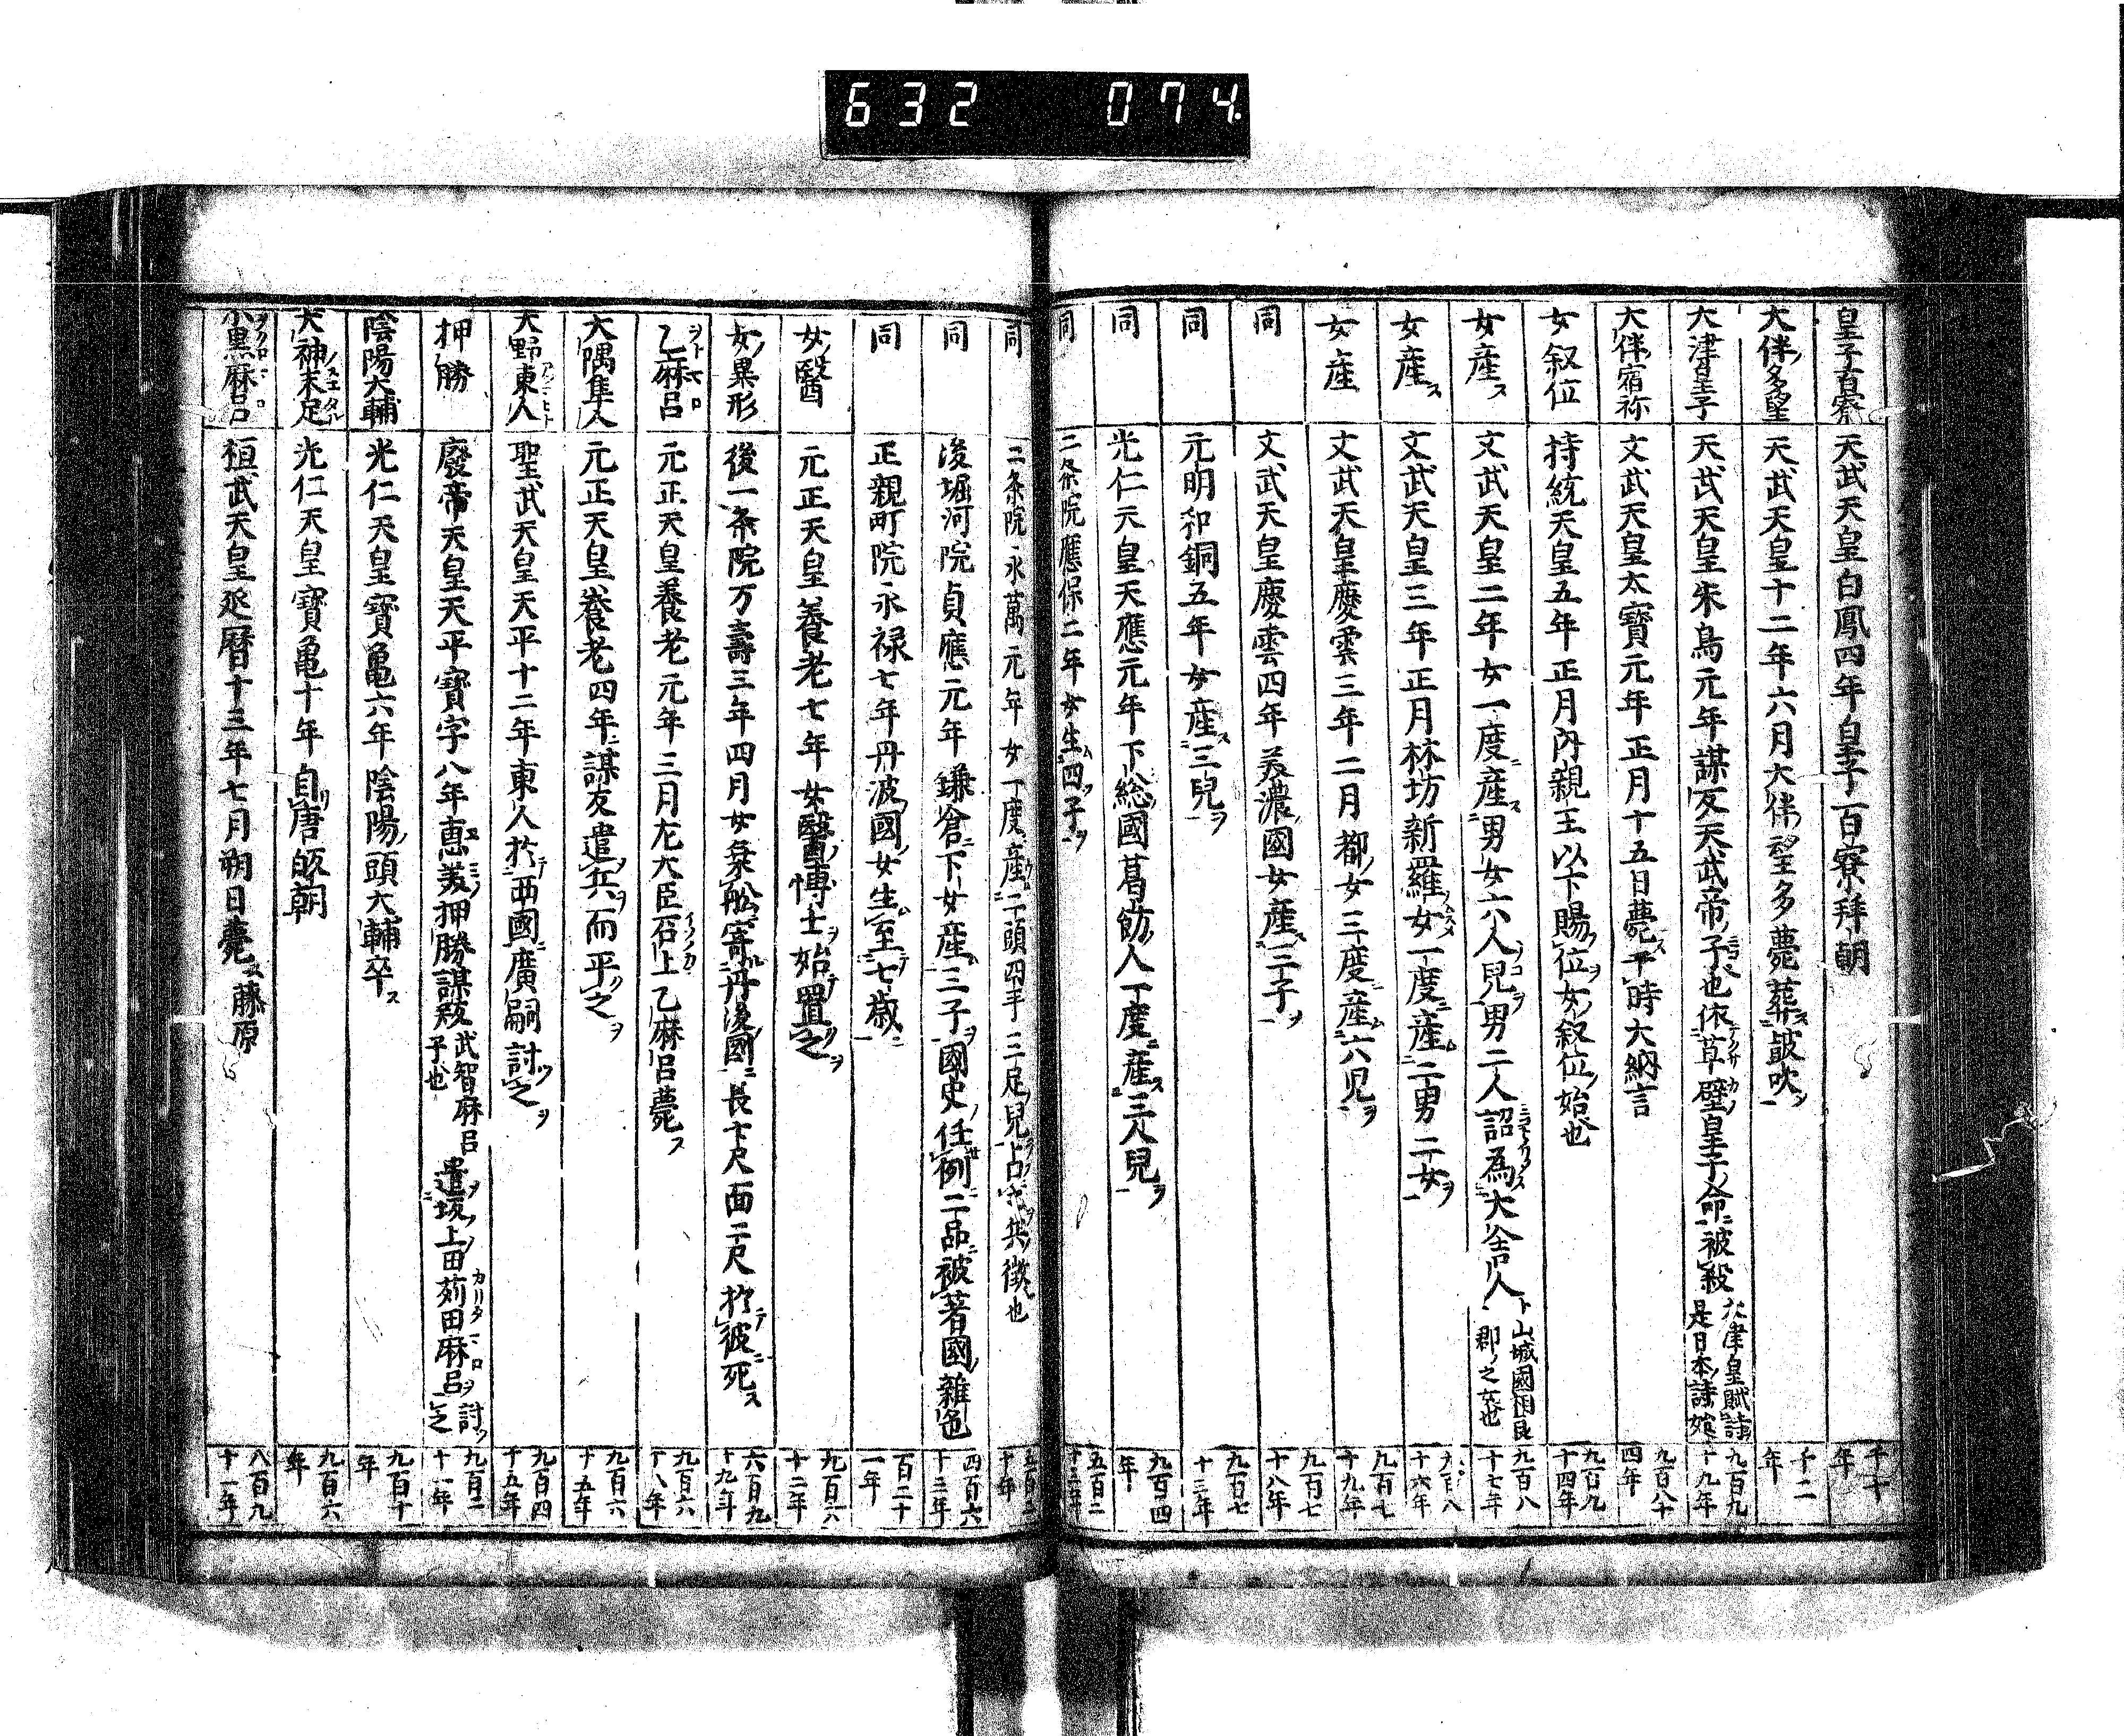 632 074
皇子百寮 天武天皇白鳳四年皇子百寮拜朝 千十年
大伴多望 天武天皇十二年六月大伴望多薨葬皷吹 千二年
大津皇子 天武天皇朱鳥元年謀反天武帝子也依草壁皇子命被殺 大津皇賦詩是日本詩始 九百九十九年
大伴宿祢 文武天皇太寶元年正月十五日薨平時大納言 九百八十四年
女叙位 持統天皇五年正月內親王以下賜位女叙位始也 九百九十四年
女産ス 文武天皇二年女一度産男女六人兒男二人詔為大舎人 山城國相良郡之女也 九百八十七年
女産ス 文武天皇三年正月林坊新羅女一度産二男二女 九百八十六年
女産 文武天皇慶雲三年二月都女三度産六児 九百七十九年
同 文武天皇慶雲四年美濃國女産二子 九百七十八年
同 元明和銅五年女産三兒 九百七十三年
同 光仁天皇天應元年下総國葛餝人一度産三人兒 九百四年
同 二条院應保二年女生四子 五百二十三年
同 二条院永萬元年女一度産二頭四手三足兒占兵徴也
同 後堀河院貞應元年鎌倉下女産三子國史任例二品被著國雜色 四百六十三年
同 正親町院永禄七年丹波國女生至七歳 百二十一年
女醫 元正天皇養老七年女醫博士始置之 九百六十二年
女異形 後一条院万壽三年四月女乗舩寄丹後國長七尺面二尺於彼死 六百九十九年
乙麻呂 元正天皇養老元年三月左大臣石上乙麻呂薨 九百六十八年
大隅隼人 元正天皇養老四年謀反遣兵而平之 九百六十五年
大野東人 聖武天皇天平十二年東人於西國廣嗣討之 九百四十五年
押勝 廢帝天皇天平寶字八年惠美押勝謀叛 武智麻呂子也 遣坂上田苅田麻呂討之 九百二十一年
陰陽大輔 光仁天皇寶亀六年陰陽頭大輔卒 九百十年
大神末足 光仁天皇寶亀十年自唐皈朝 九百六年
小黒麻呂 桓武天皇延暦十三年七月朔日薨 藤原 八百九十一年